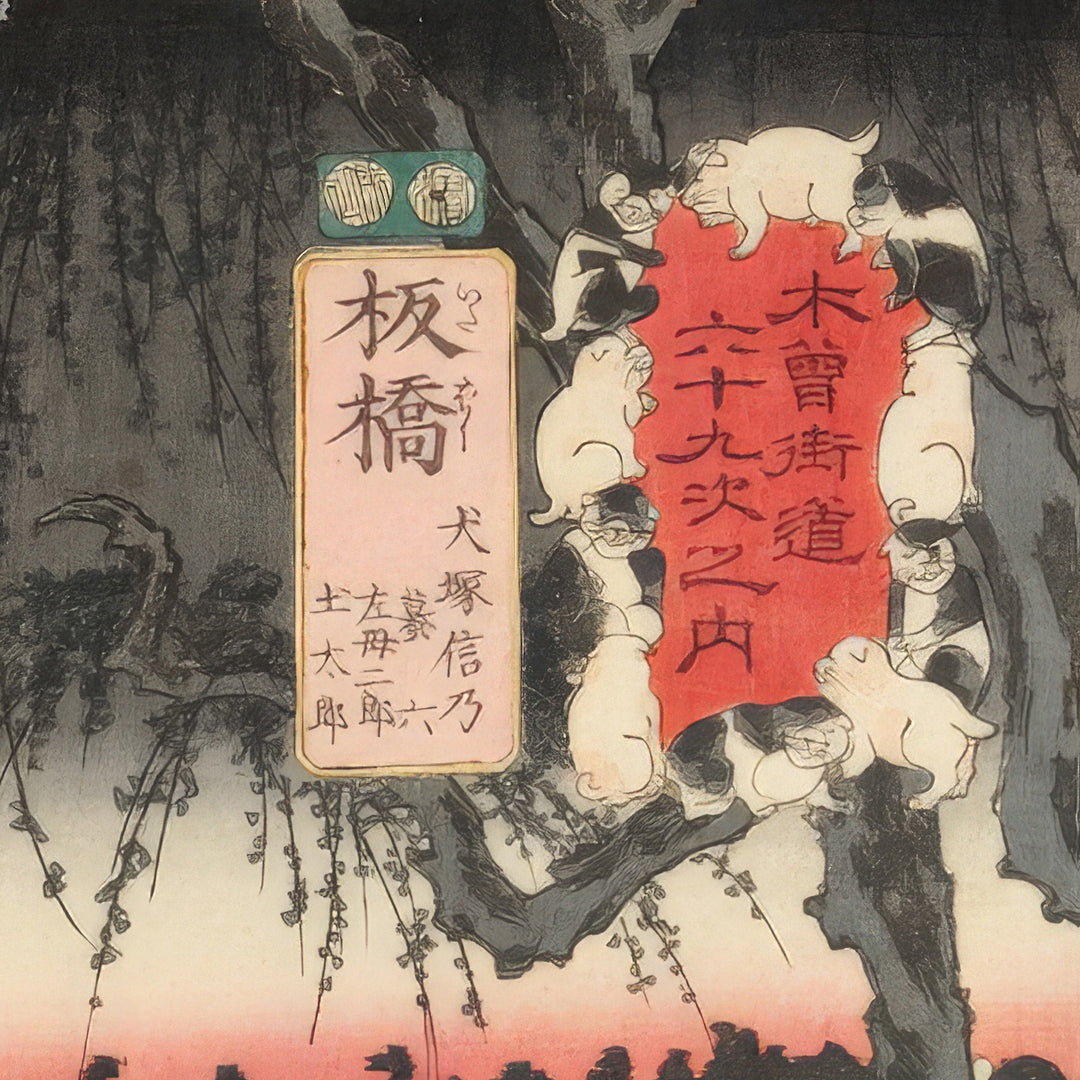 木曾街道
六十九次之内
板橋
いたはし
犬塚信乃
蟇六
左母二郎
土太郎